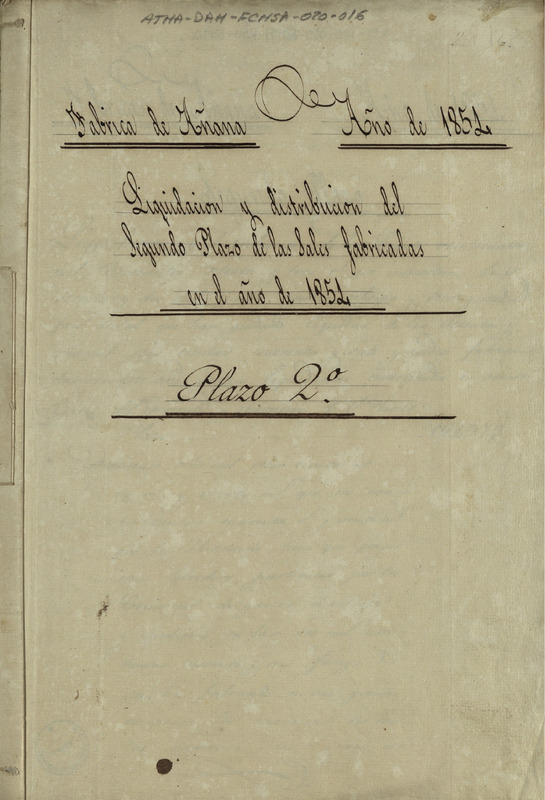 ATHA-DAH-FCMSA-020-016
Fabrica de Añana Año de 1854
Liquidacion y distribucion del
Segundo Plazo de las Sales fabricadas
en el año de 1854
Plazo 2º